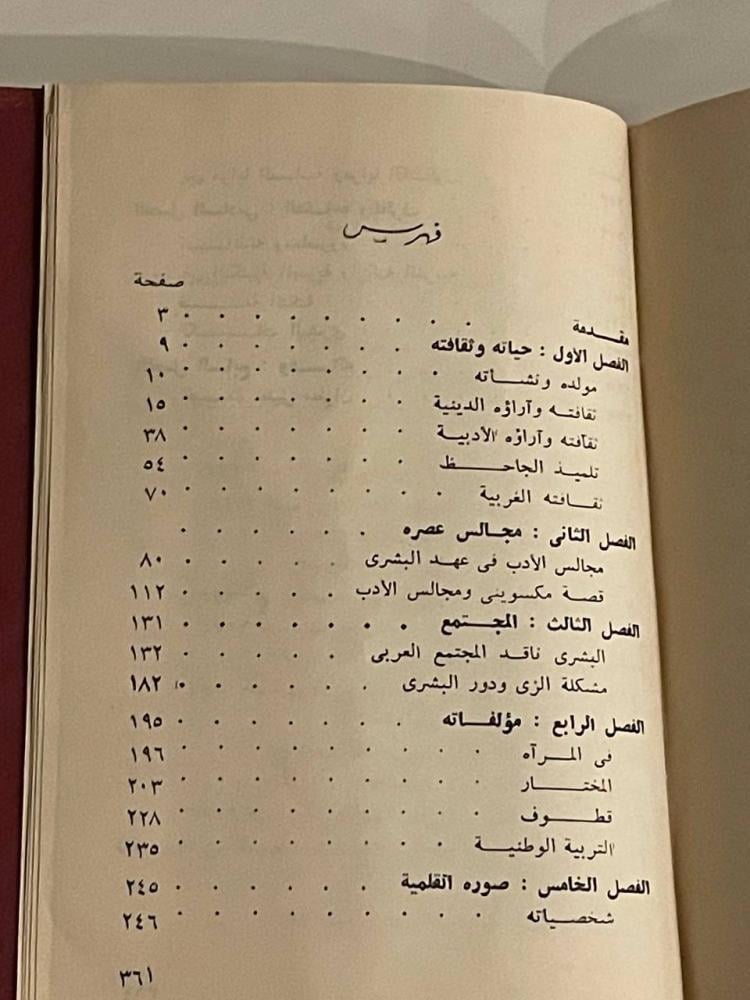 فهرس
صفحة
مقدمة . . . . . . . . ٣
الفصل الأول : حياته وثقافته . . . . . . ٩
مولده ونشأته . . . . . . . ١٠
ثقافته وآراؤه الدينية . . . . . . ١٥
ثقافته وآراؤه الأدبية . . . . . . ٣٨
تلميذ الجاحظ . . . . . . . ٥٤
ثقافته الغربية . . . . . . . ٧٠
الفصل الثانى : مجالس عصره . . . . . .
مجالس الأدب فى عهد البشرى . . . . . ٨٠
قصة مكسوينى ومجالس الأدب . . . . . ١١٢
الفصل الثالث : المجتمع . . . . . . . ١٣١
البشرى ناقد المجتمع العربى . . . . . ١٣٢
مشكلة الزى ودور البشرى . . . . . . ١٨٢
الفصل الرابع : مؤلفاته . . . . . . . ١٩٥
فى المرآه . . . . . . . . ١٩٦
المختار . . . . . . . . ٢٠٣
قطوف . . . . . . . . ٢٢٨
التربية الوطنية . . . . . . . . ٢٣٥
الفصل الخامس : صوره القلمية . . . . . . ٢٤٥
شخصياته . . . . . . . . ٢٤٦
٣٦١